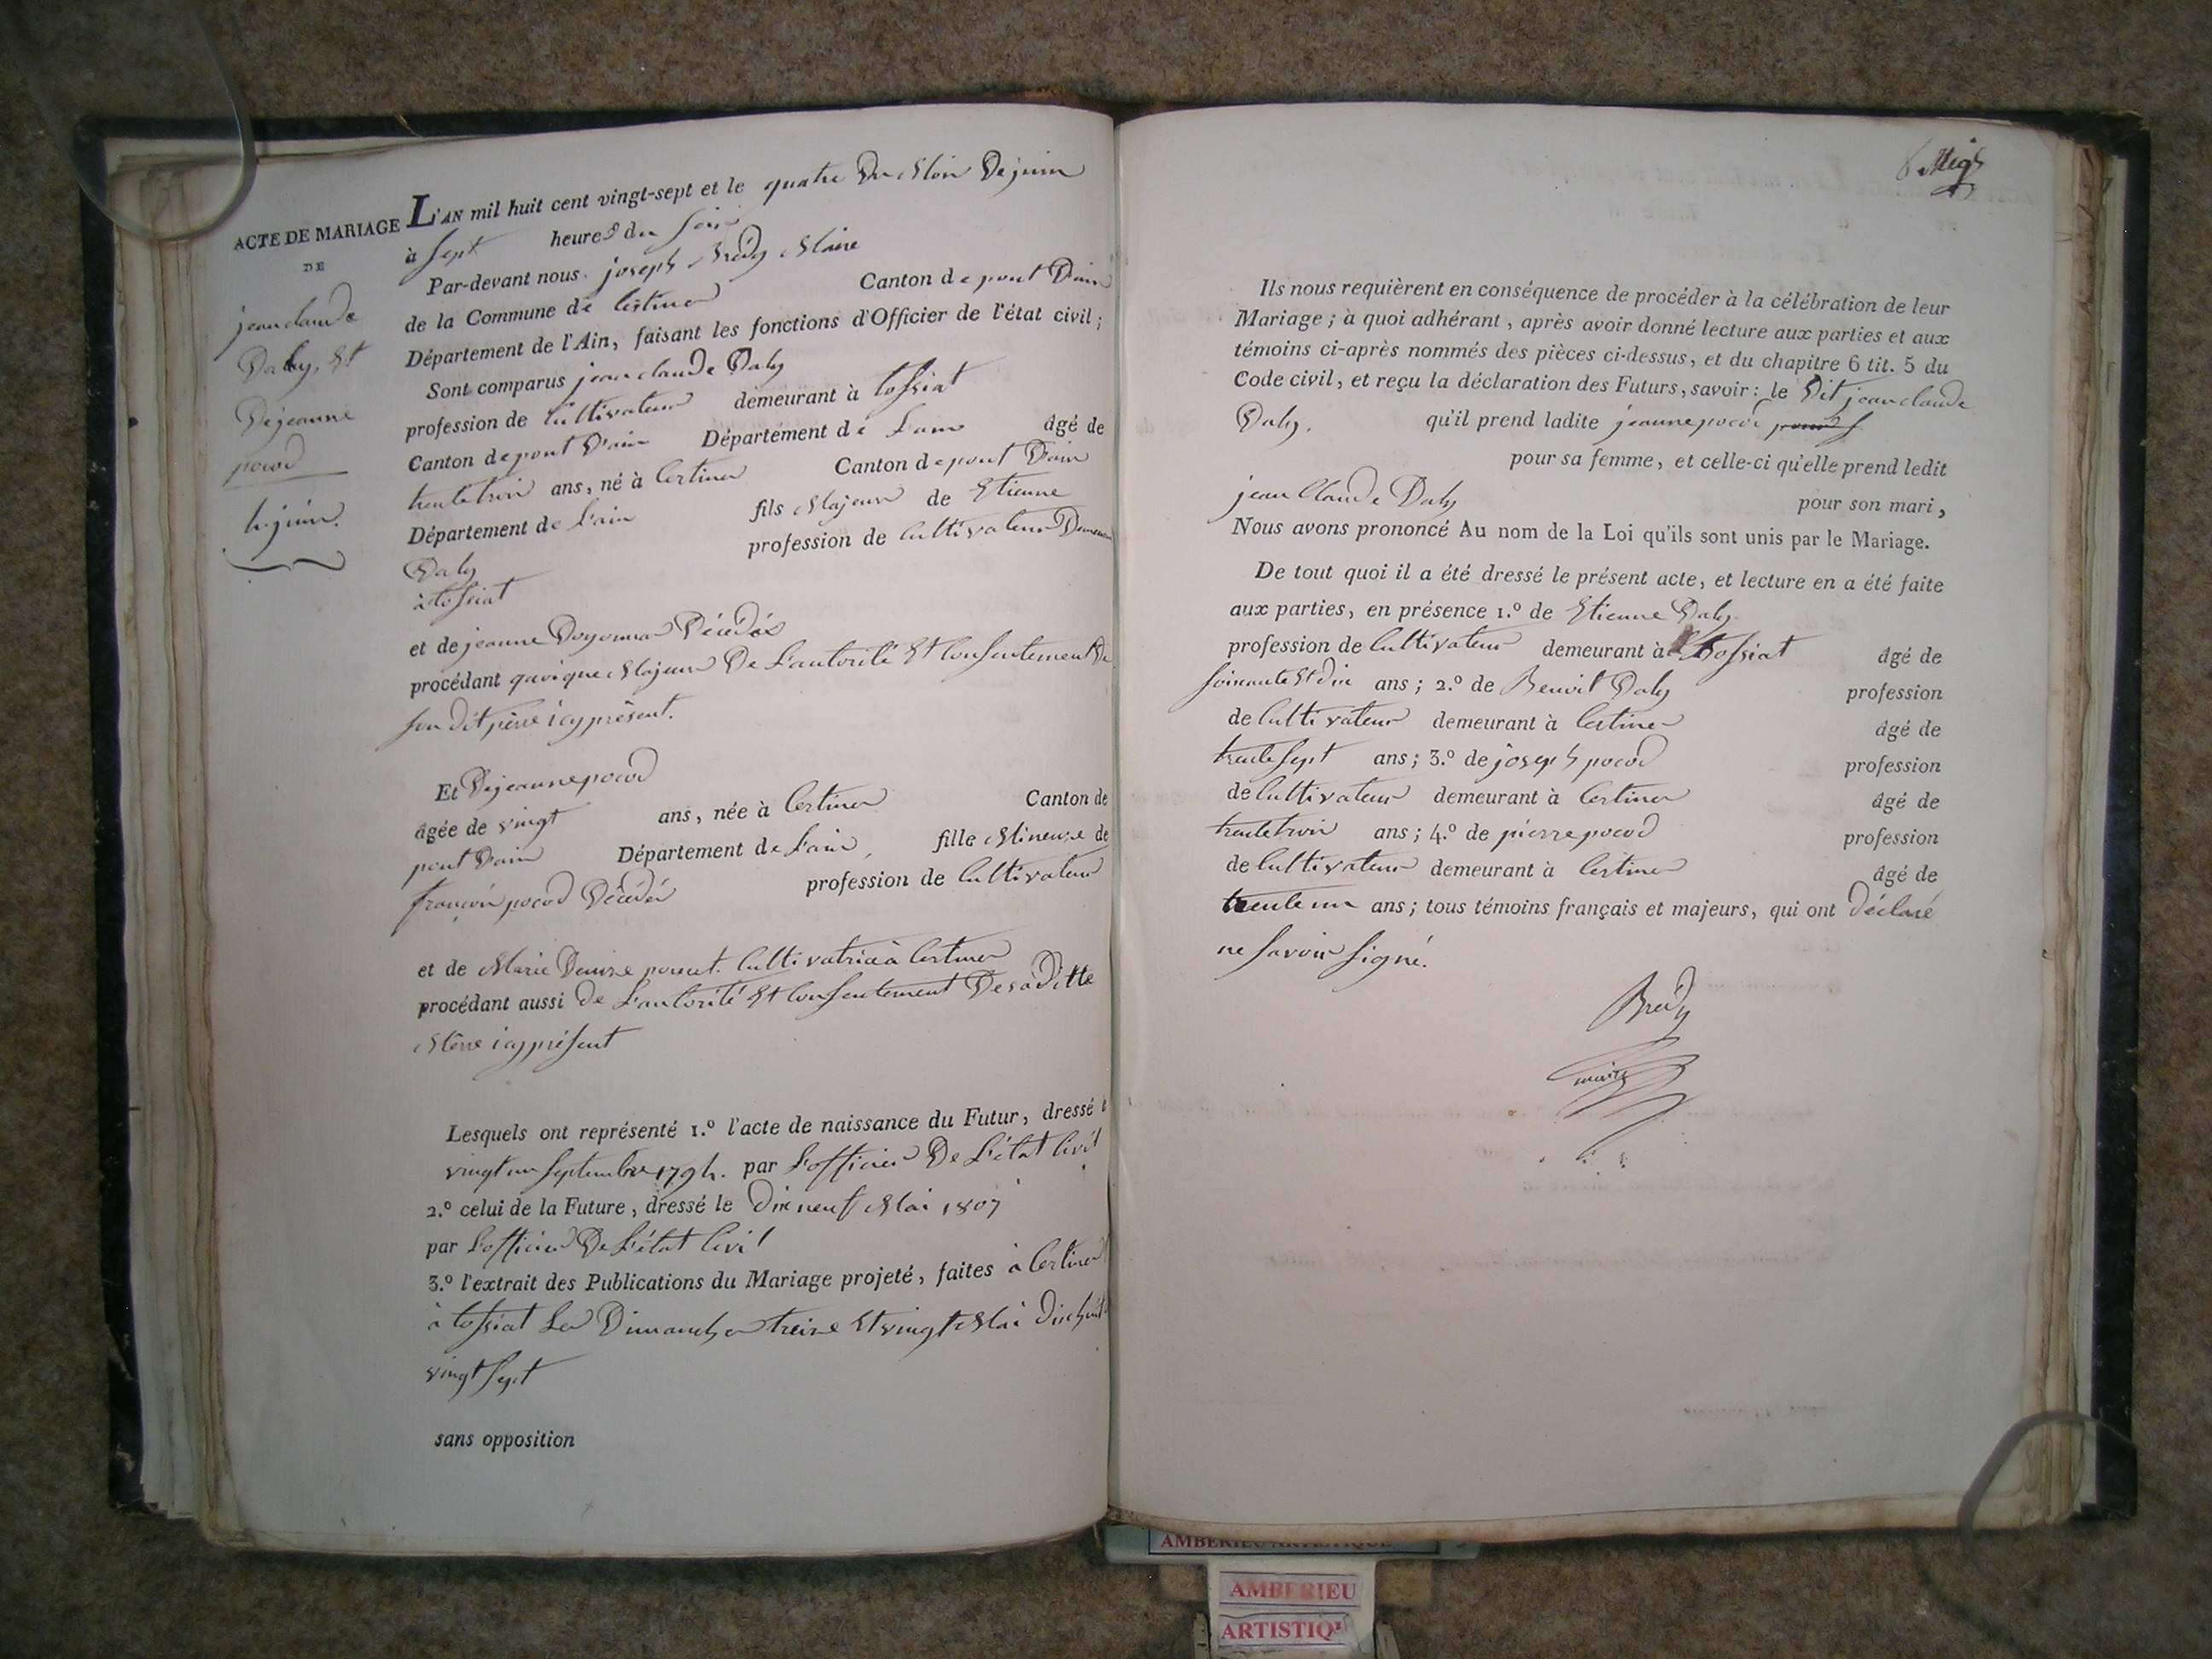 ACTE DE MARIAGE
DE
jean claude
Daly, Et
De jeanne
pocod
4 juin.
L'AN mil huit cent vingt-sept et le quatre Du Mois De juin
à sept heures du soir
Par-devant nous joseph Bredy Maire
de la Commune de Certines Canton de pont Dain
Département de l'Ain, faisant les fonctions d'Officier de l'état civil;
Sont comparus jean claude Daly
profession de Cultivateur demeurant à tossiat
Canton de pont D'ain Département de L'ain âgé de
trente trois ans, né à Certines Canton de pont Dain
Département de L'ain fils Majeur de Etienne
Daly profession de Cultivateur
à tossiat
et de jeanne Décédée
procédant quoique Majeur De L'autorité Et Consentement De
son dit père icy présent.
Et De jeanne pocod
âgée de vingt ans, née à Certines Canton de
pont D'ain Département de L'ain, fille Mineure de
françois pocod Décédé profession de Cultivateur
et de Marie Denise Cultivatrice à Certines
procédant aussi De L'autorité Et Consentement De sa Ditte
Mère icy présent
Lesquels ont représenté 1.º l'acte de naissance du Futur, dressé
vingt un septembre 1794. par L'officier De L'état Civil
2.º celui de la Future, dressé le Dix neuf Mai 1807
par L'officier De L'état Civil
3.º l'extrait des Publications du Mariage projeté, faites à Certines
à tossiat Les Dimanches treize Et vingt Mai
vingt sept
sans opposition
Ils nous requièrent en conséquence de procéder à la célébration de leur
Mariage; à quoi adhérant, après avoir donné lecture aux parties et aux
témoins ci-après nommés des pièces ci-dessus, et du chapitre 6 tit. 5 du
Code civil, et reçu la déclaration des Futurs, savoir: le Dit jean claude
Daly. qu'il prend ladite jeanne pocod
pour sa femme, et celle-ci qu'elle prend ledit
jean Claude Daly pour son mari,
Nous avons prononcé Au nom de la Loi qu'ils sont unis par le Mariage.
De tout quoi il a été dressé le présent acte, et lecture en a été faite
aux parties, en présence 1.º de Etienne Daly
profession de Cultivateur demeurant à tossiat âgé de
soixante Et dix ans; 2.º de Benoit Daly profession
de Cultivateur demeurant à Certines âgé de
trente sept ans; 3.º de joseph pocod profession
de Cultivateur demeurant à Certines âgé de
trente trois ans; 4.º de pierre pocod profession
de Cultivateur demeurant à Certines âgé de
trente un ans; tous témoins français et majeurs, qui ont déclaré
ne savoir signé.
Bredy
maire
AMBERIEU ARTISTIQUE
AMBERIEU
ARTISTIQU